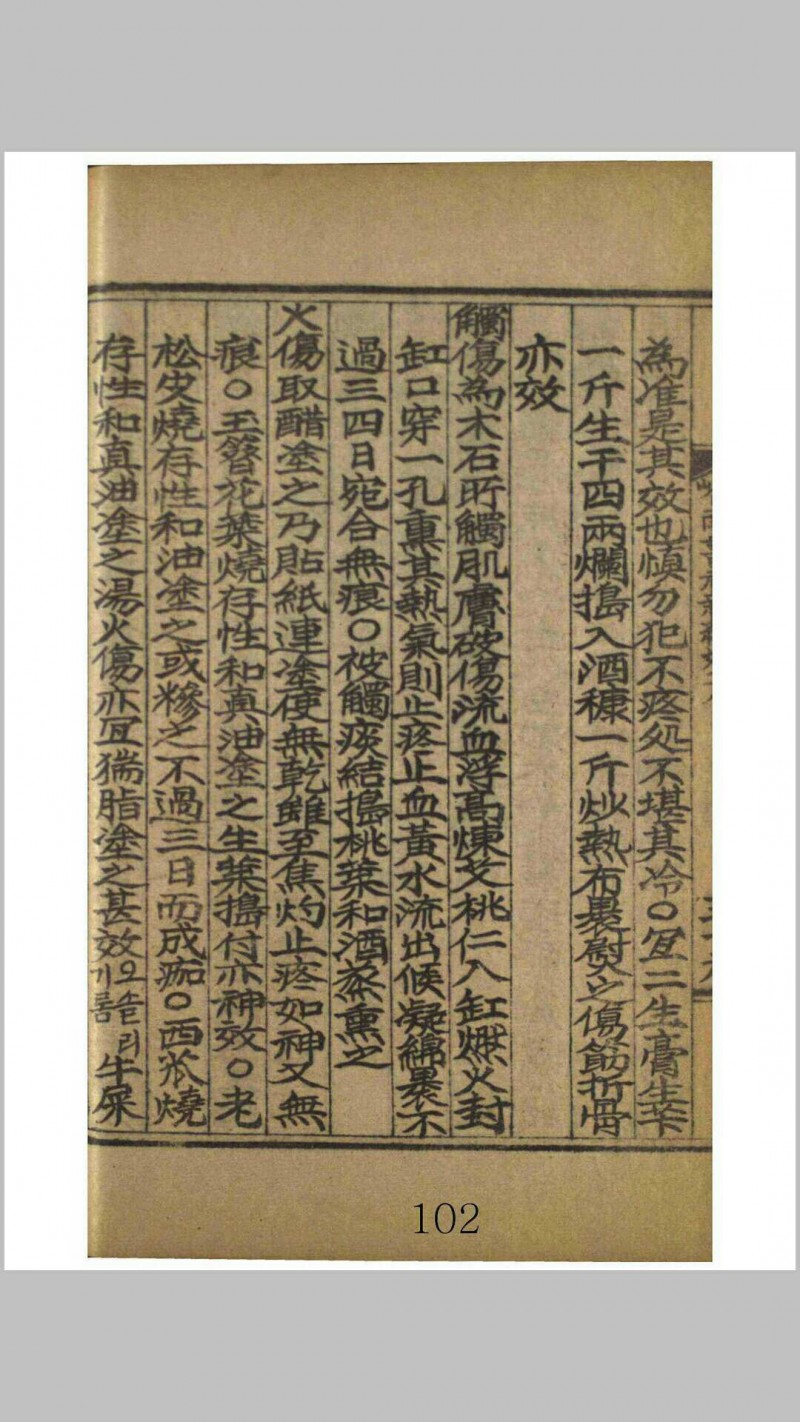 為准是其效也慎勿犯不疼処不堪其冷○冝二生膏生芐
一斤生干四兩爛搗入酒糠一斤炒熱布裹熨之傷筋折骨
亦效
觸傷為木石所觸肌膚破傷流血浮高煉艾桃仁入缸燃火封
缸口穿一孔熏其熱氣則止疼止血黃水流出候凝綿裹不
過三四日宛合無痕○被觸痰結搗桃葉和酒蒸熏之
火傷取醋塗之乃貼紙連塗使無乾雖至焦灼止疼如神又無
痕○玉簪花葉燒存性和真油塗之生葉搗付亦神效○老
松皮燒存性和油塗之或糝之不過三日而成痂○西瓜燒
存性和真油塗之湯火傷亦冝猯脂塗之甚效오솔리기름牛屎
102